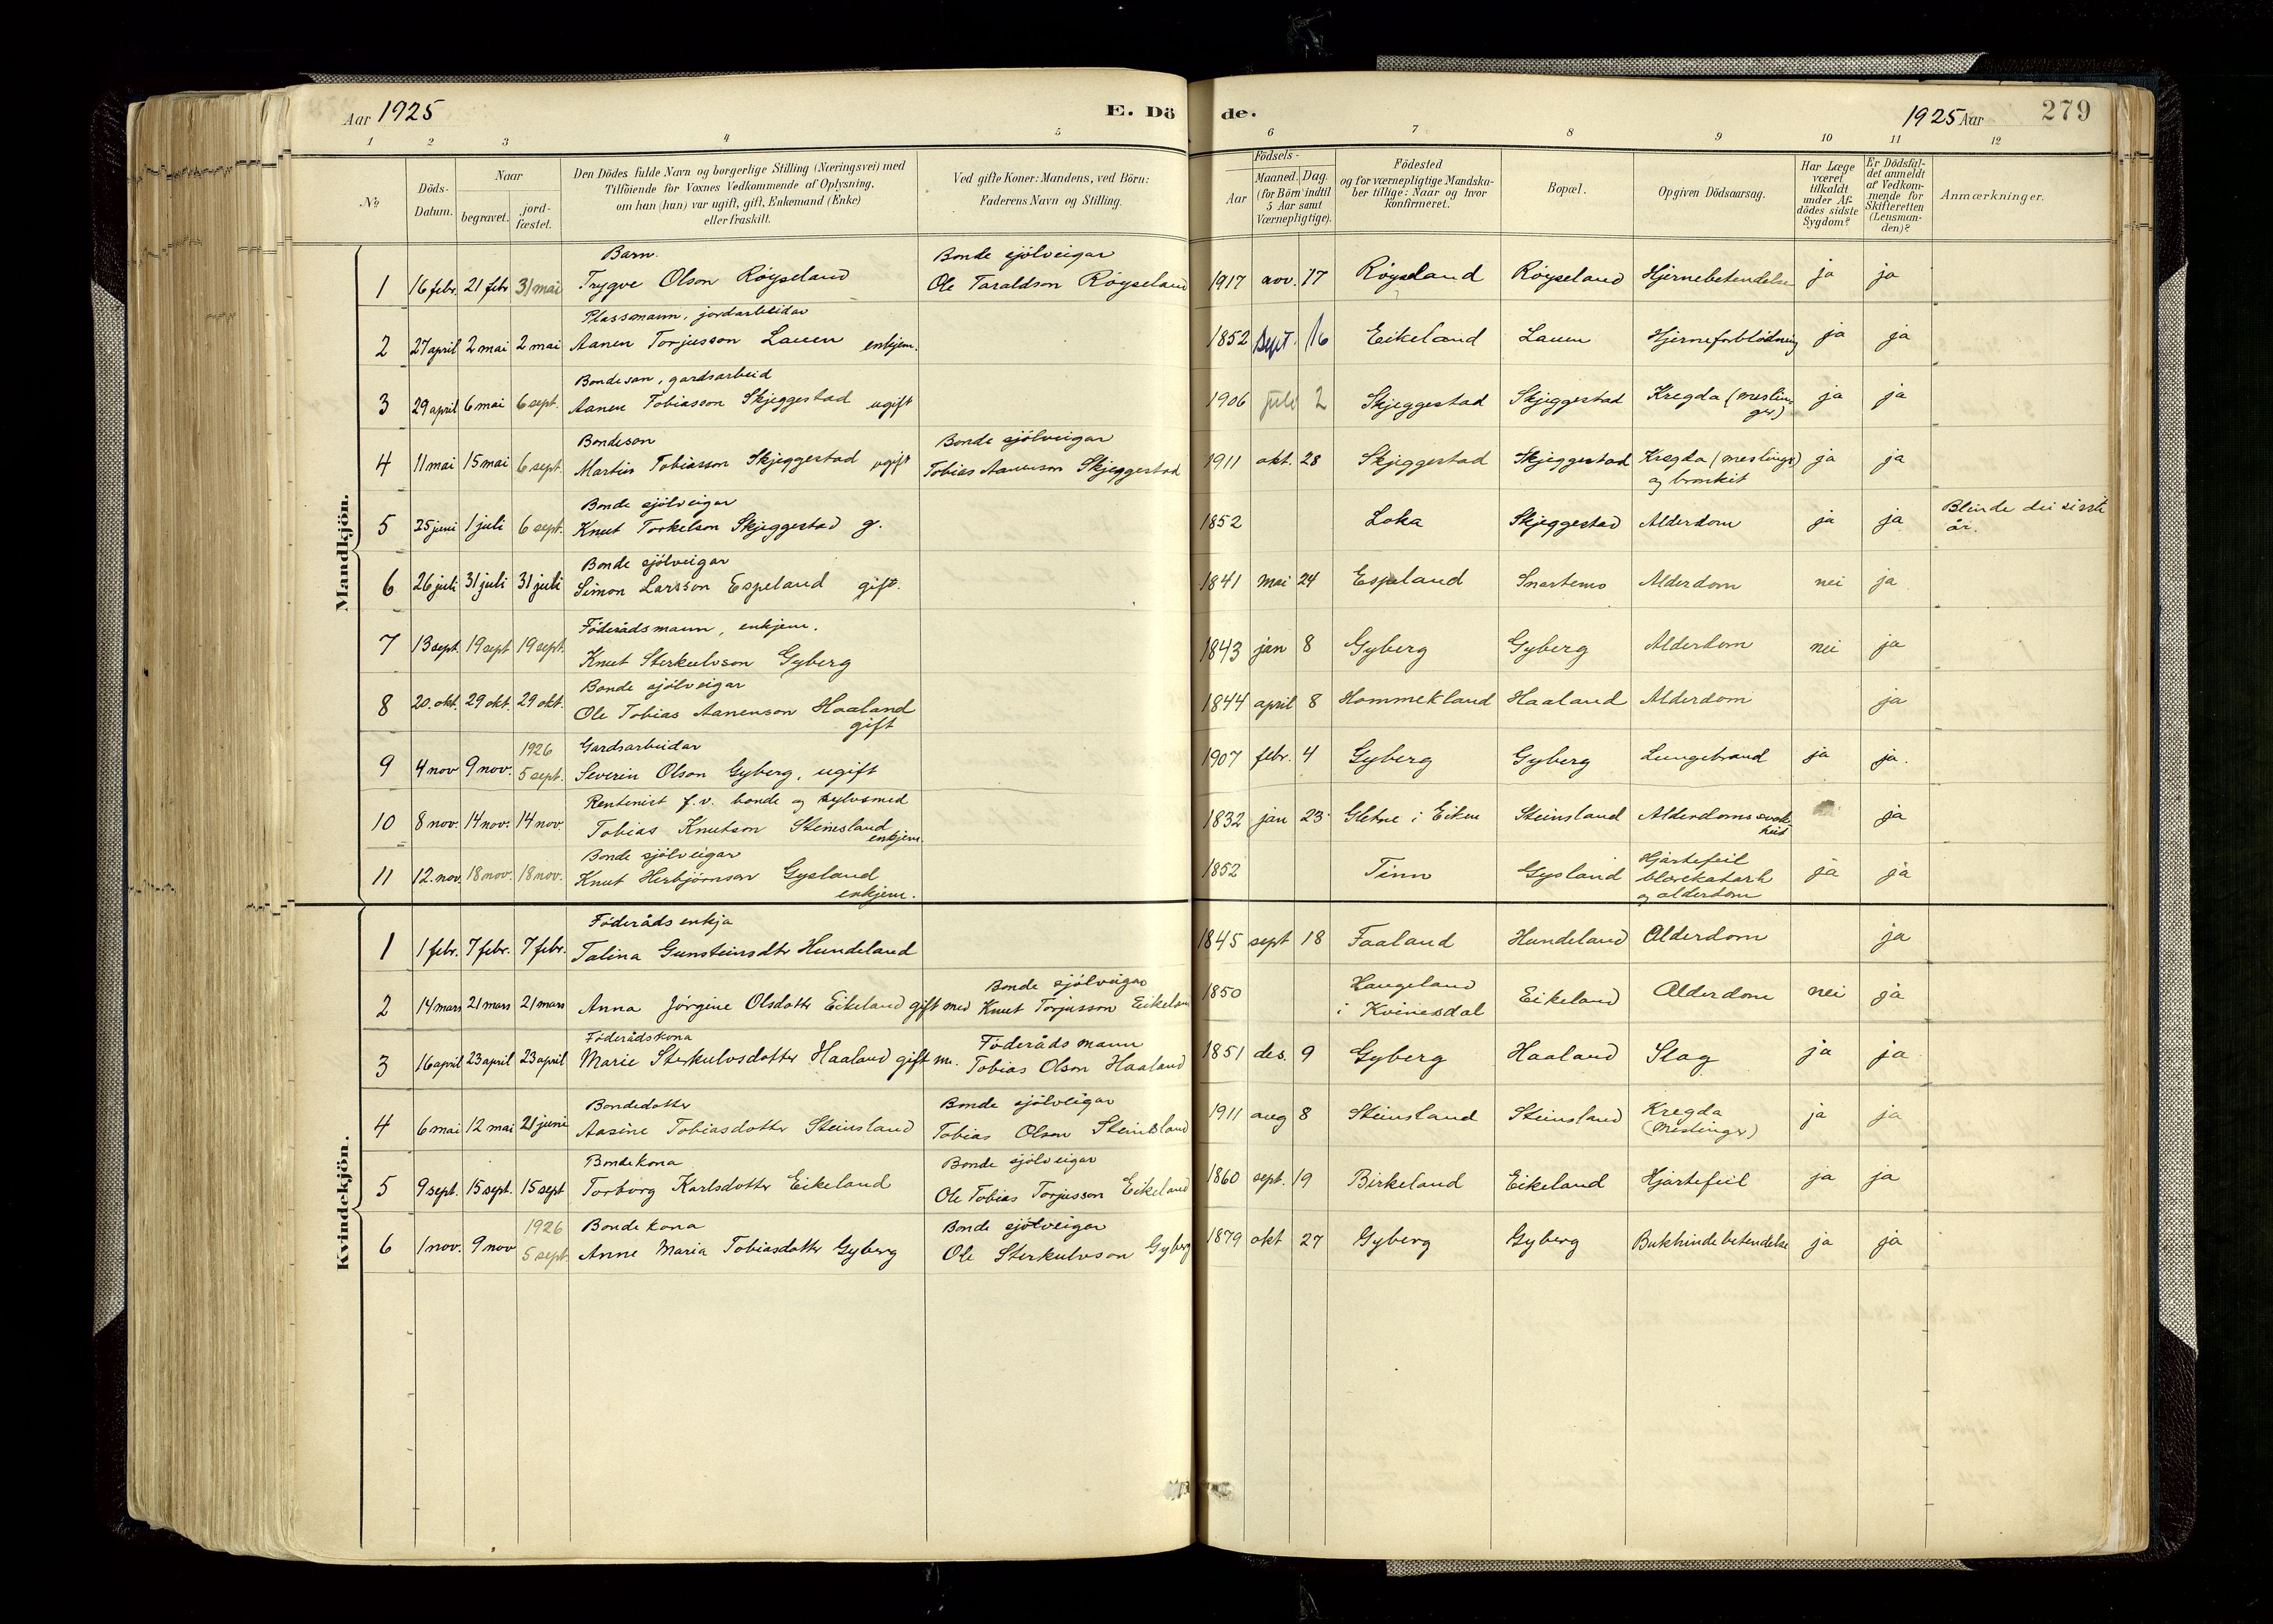 Aar 1925
E. Dö
de.
1925 Aar
279
1 2 3 4 5 6 7 8 9 10 11 12
No
Döds-Datum.
Naar
begravet.
jord-fæstet.
Den Dödes fulde Navn og borgerlige Stilling (Næringsvei) med
Tilföiende for Voxnes Vedkommende af Oplysning,
om han (hun) var ugift, gift, Enkemand (Enke)
eller fraskilt.
Ved gifte Koner: Mandens, ved Börn:
Faderens Navn og Stilling.
Födsels-
Aar
Maaned. Dag.
(for Börn indtil
5 Aar samt
Værnepligtige).
Födested
og for værnepligtige Mandska-
ber tillige: Naar og hvor
konfirmeret.
Bopæl.
Opgiven Dödsaarsag.
Har Læge
været
tilkaldt
under Af-
dödes sidste
Sygdom?
Er Dödsfal-
det anmeldt
af Vedkom-
mende for
Skifteretten
(Lensman-
den)?
Anmærkninger.
Mandkjön.
Barn. Bonde sjölveigar
1 16 febr. 21 febr 31 mai Trygve Olson Röyseland Ole Taraldson Röyseland 1917 nov. 17 Röyseland Röyseland Hjernebetendelse ja ja
Plassmann, jordarbeidar
2 27 april 2 mai 2 mai Aanen Torjusson Lauen enkjem. 1852 Sept. 16 Eikeland Lauen Hjerneforblödning ja ja
Bondeson, gardsarbeid
3 29 april 6 mai 6 sept. Aanen Tobiasson Skjeggestad ugift 1906 juli 2 Skjeggestad Skjeggestad Kregda (meslin-
ger) ja ja
Bondeson Bonde sjölveigar
4 11 mai 15 mai 6 sept. Martin Tobiasson Skjeggestad ugift Tobias Aanenson Skjeggestad 1911 okt. 28 Skjeggestad Skjeggestad Kregda (meslinger) ja ja
og bronkit
Bonde sjölveigar
5 25 juni 1 juli 6 sept. Knut Torkelson Skjeggestad g. 1852 Loka Skjeggestad Alderdom ja ja Blinde dei siste
år.
Bonde sjölveigar
6 26 juli 31 juli 31 juli Simon Larsson Espeland gift. 1841 mai 24 Espeland Snartemo Alderdom nei ja
Föderådsmann, enkjem.
7 13 sept. 19 sept 19 sept. Knut Sterkulvson Gyberg 1843 jan 8 Gyberg Gyberg Alderdom nei ja
Bonde sjölveigar
8 20. okt. 29 okt. 29 okt. Ole Tobias Aanenson Haaland 1844 april 8 Hommekland Haaland Alderdom ja
gift
1926 Gardsarbeidar
9 4 nov 9 nov. 5 sept. Severin Olson Gyberg, ugift 1907 febr. 4 Gyberg Gyberg Lungebrand ja ja.
Rentenist f.v. bonde og sylvsmed
10 8 nov. 14 nov. 14 nov. Tobias Knutson Steinsland 1832 jan 23 Gletne i Eiken Steinsland Alderdomssvak-
heit ja
enkjem.
Bonde sjölveigar
11 12. nov. 18 nov. 18 nov. Knut Herbjörnson Gysland 1852 Tinn Gysland Hjartefeil
blærekatarh
og alderdom ja ja
enkjem.
Kvindekjön.
Föderåds enkja
1 1 febr. 7 febr. 7 febr. Talina Gunsteinsdtr Hundeland 1845 sept 18 Faaland Hundeland Alderdom ja
Bonde sjölveigar
2 14 mars 21 mars 21 mars Anna Jörgine Olsdotter Eikeland gift med Knut Torjusson Eikeland 1850 Haugeland
i Kvinesdal Eikeland Alderdom nei ja
Föderådskona Föderåds mann
3 16 april 23 april 23 april Marie Sterkulvsdotter Haaland gift m. Tobias Olson Haaland 1851 des. 9 Gyberg Haaland Slag ja ja
Bondedotter Bonde sjölveigar
4 6 mai 12 mai 21 juni Aasine Tobiasdotter Steinsland Tobias Olson Steinsland 1911 aug 8 Steinsland Steinsland Kregda
(Meslinger) ja ja
Bondekona Bonde sjölveigar
5 9 sept. 15 sept. 15 sept Torborg Karlsdotter Eikeland Ole Tobias Torjusson Eikeland 1860 sept. 19 Birkeland Eikeland Hjartefeil ja ja
1926 Bondekona Bonde sjölveigar
6 1 nov. 9 nov 5 sept. Anne Maria Tobiasdotter Gyberg Ole Sterkulvson Gyberg 1879 okt 27 Gyberg Gyberg Bukhindebetendelse ja ja